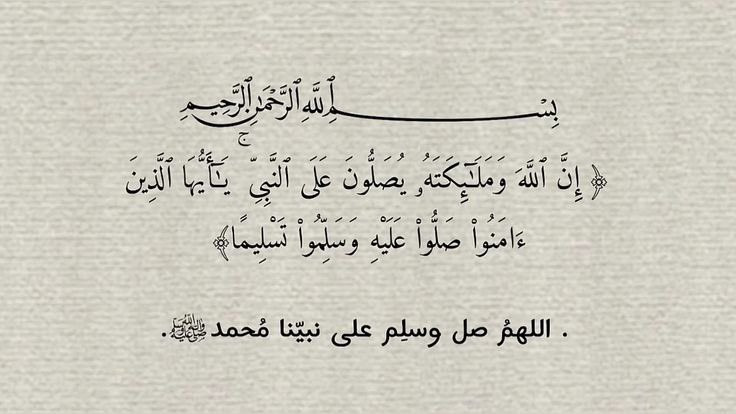 بِسْمِ ٱللَّهِ ٱلرَّحْمَٰنِ ٱلرَّحِيمِ
﴿ إِنَّ ٱللَّهَ وَمَلَٰٓئِكَتَهُۥ يُصَلُّونَ عَلَى ٱلنَّبِىِّ ۚ يَٰٓأَيُّهَا ٱلَّذِينَ
ءَامَنُوا۟ صَلُّوا۟ عَلَيْهِ وَسَلِّمُوا۟ تَسْلِيمًا﴾
. اللهمُ صل وسلِم على نبيّنا مُحمدﷺ.